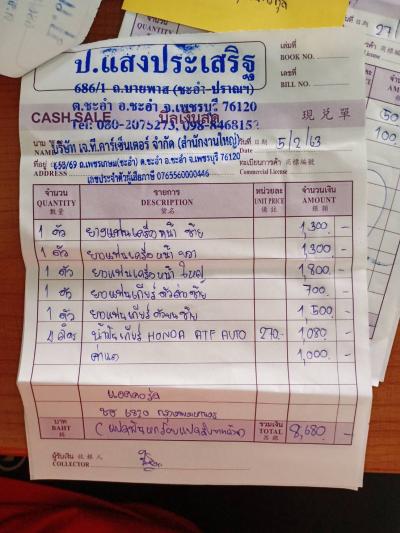 ป.แสงประเสริฐ
686/1 ถ.บายพาส (ชะอำ-ปราณฯ)
ต.ชะอำ อ.ชะอำ จ.เพชรบุรี 76120
Tel: 080-2075273, 098-8468153
เล่มที่
BOOK NO.
เลขที่
BILL NO.
CASH SALE บิลเงินสด 現兑單
นาม NAME บริษัท เจ.ที.คาร์เซ็นเตอร์ จำกัด (สำนักงานใหญ่)
วันที่ Date 5/2/63
ที่อยู่ ADDRESS 658/69 ถ.เพชรเกษม(ชะอำ) ต.ชะอำ อ.ชะอำ จ.เพชรบุรี 76120
ทะเบียนการค้า
Commercial License
เลขประจำตัวผู้เสียภาษี 0765560000446
จำนวน รายการ หน่วยละ จำนวนเงิน
QUANTITY DESCRIPTION UNIT PRICE AMOUNT
1 ตัว ยางแท่นเครื่องหน้า ซ้าย 1,300 -
1 ตัว ยางแท่นเครื่อง หน้า ขวา 1,300 -
1 ตัว ยางแท่นเครื่อง หน้า ใหญ่ 1,800 -
1 ตัว ยางแท่นเกียร์ ตัวล่างซ้าย 700 -
1 ตัว ยางแท่นเกียร์ ตัวบน ซ้าย 1,500 -
4 ลิตร น้ำมันเกียร์ HONDA ATF AUTO 270.- 1,080 -
ค่าแรง 1,000 -
แอคคอร์ด
6320 กรุงเทพมหานคร
บาท BAHT
รวมเงิน TOTAL 8,680 -
ผู้รับเงิน 收銀人
COLLECTOR